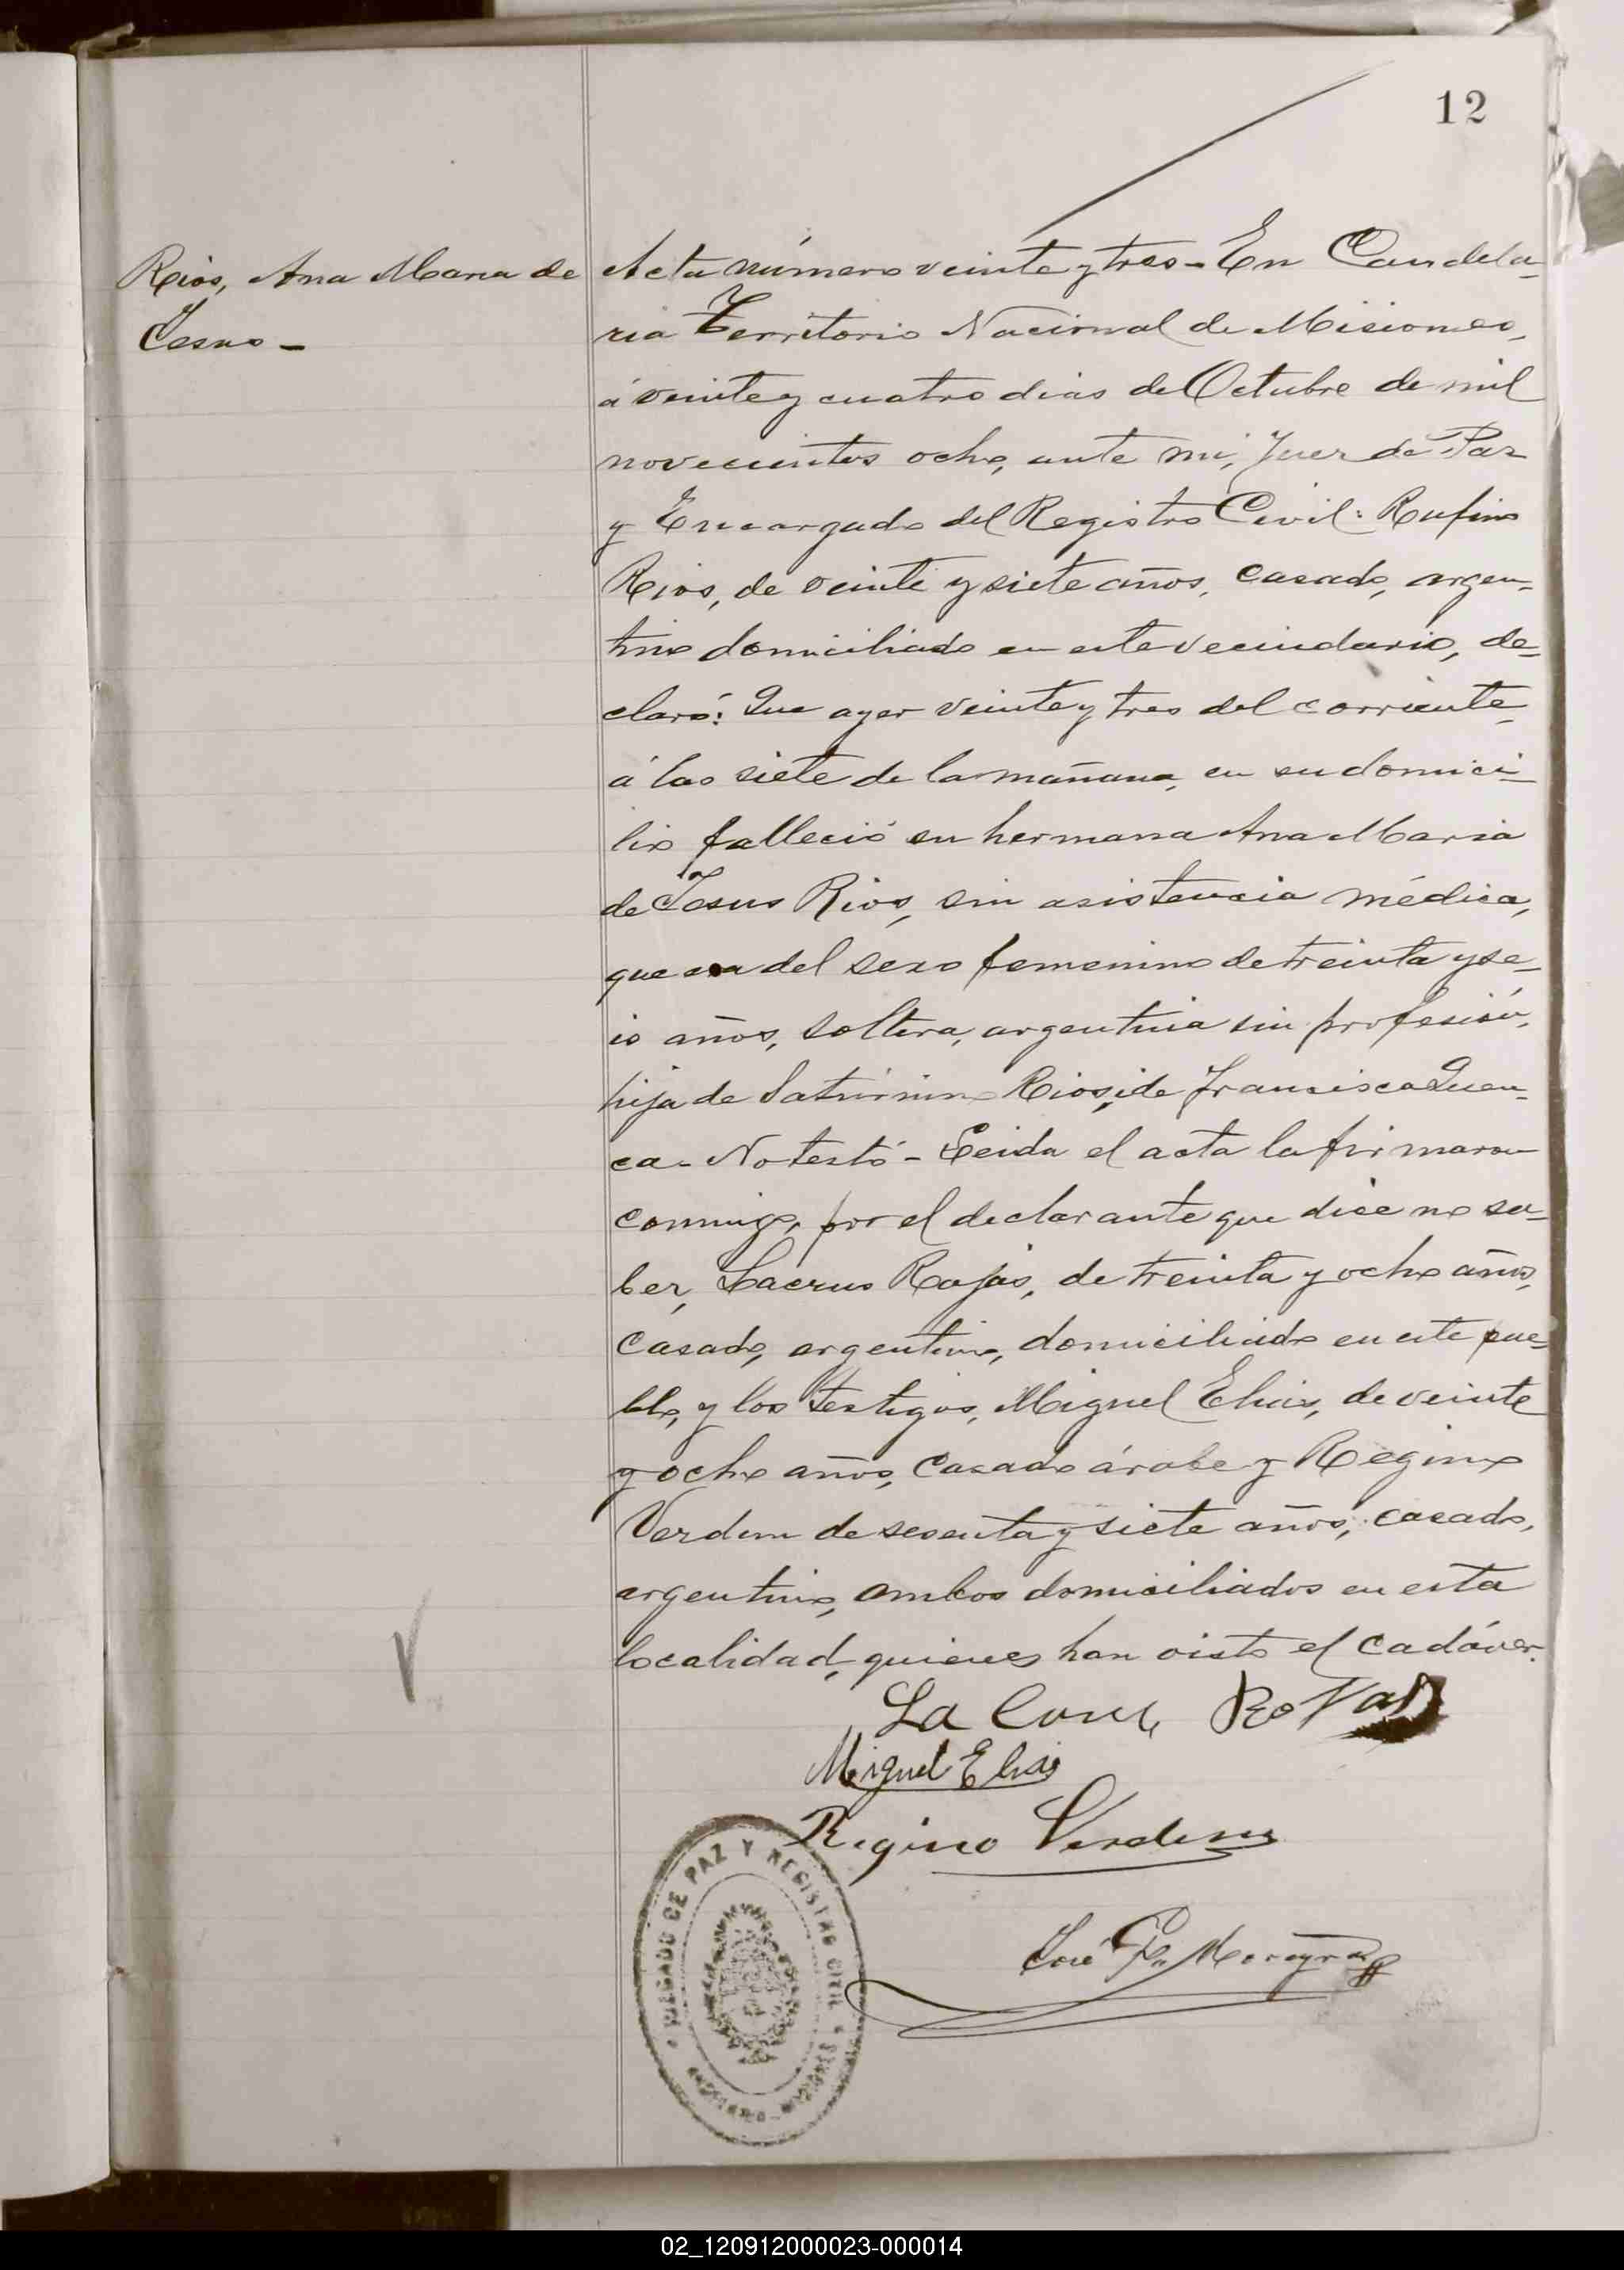 12
Rios, Ana Maria de
Jesus -
Acta número veinte y tres - En Candela-
ria Territorio Nacional de Misiones,
á veinte y cuatro dias de Octubre de mil
novecientos ocho, ante mi, Juez de Paz
y Encargado del Registro Civil: Rufino
Rios, de veinte y siete años, casado, argen-
tino domiciliado en este vecindario, de-
claró: Que ayer veinte y tres del corriente
á las siete de la mañana, en su domici-
lio falleció su hermana Ana Maria
de Jesus Rios, sin asistencia médica,
que era del sexo femenino de treinta y se-
is años, soltera, argentina sin profesión,
hija de Saturnino Rios, i de Francisca Quen-
ca - No testó - Leida el acta la firmaron
conmigo, por el declarante que dice no sa-
ber, Lacrus Rojas, de treinta y ocho años,
casado, argentino, domiciliado en este pue-
blo, y los testigos, Miguel Elias, de veinte
y ocho años, casado árabe y Regino
Verdun de sesenta y siete años, casado,
argentino, ambos domiciliados en esta
localidad, quienes han visto el cadáver.
La Cruz Rojas
Miguel Elias
Regino Verdun
José
JUZGADO DE PAZ Y REGISTRO CIVIL
02_120912000023-000014